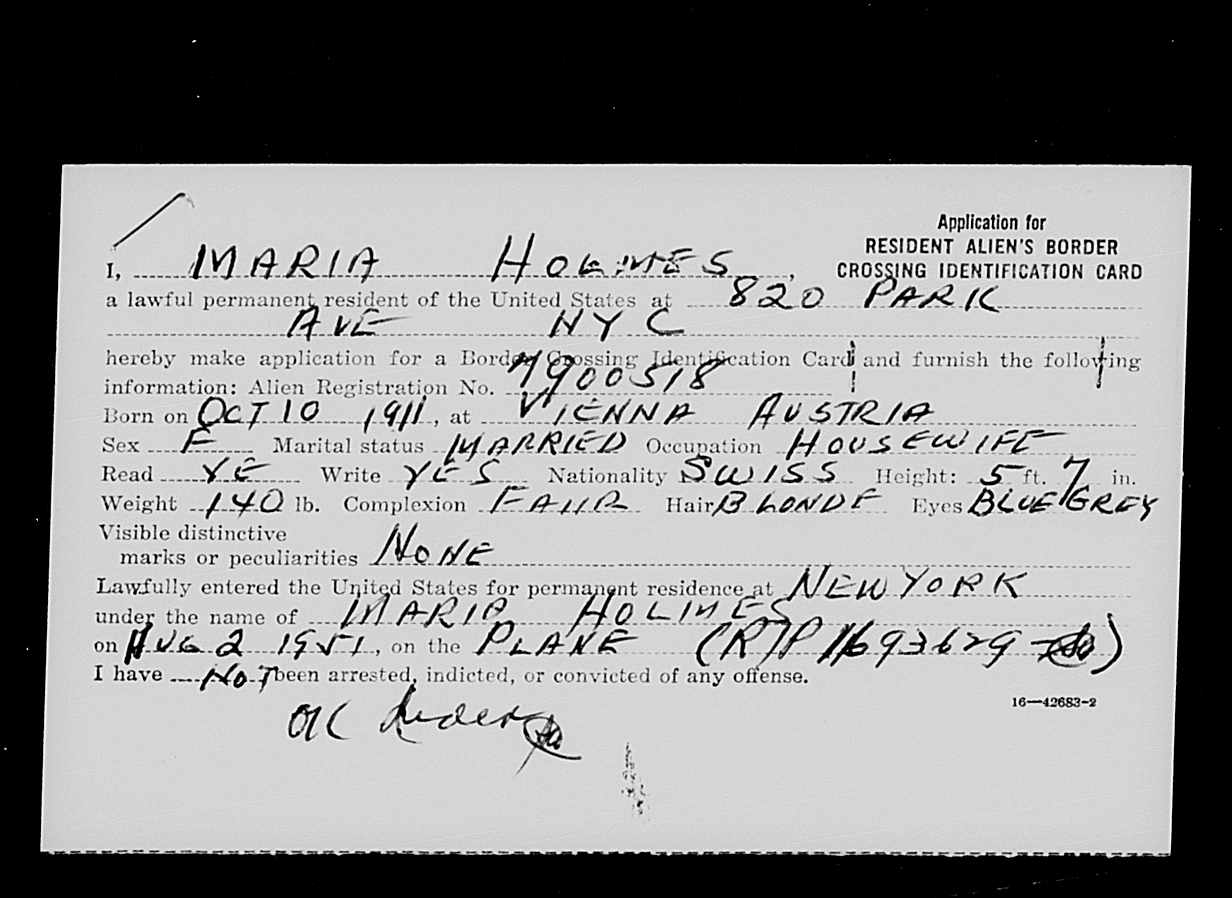 Application for
RESIDENT ALIEN'S BORDER
CROSSING IDENTIFICATION CARD
I, MARIA HOLMES,
a lawful permanent resident of the United States at 820 PARK
AVE NYC
hereby make application for a Border Crossing Identification Card and furnish the following
information: Alien Registration No. 7900518
Born on OCT 10 1911, at VIENNA AUSTRIA
Sex F Marital status MARRIED Occupation HOUSEWIFE
Read YE Write YES Nationality SWISS Height: 5 ft. 7 in.
Weight 140 lb. Complexion FAIR Hair BLONDE Eyes BLUE GREY
Visible distinctive
marks or peculiarities NONE
Lawfully entered the United States for permanent residence at NEW YORK
under the name of MARIA HOLMES
on AUG 2 1951, on the PLANE (R)P 1693629
I have NOT been arrested, indicted, or convicted of any offense.
16—42683-2
OK